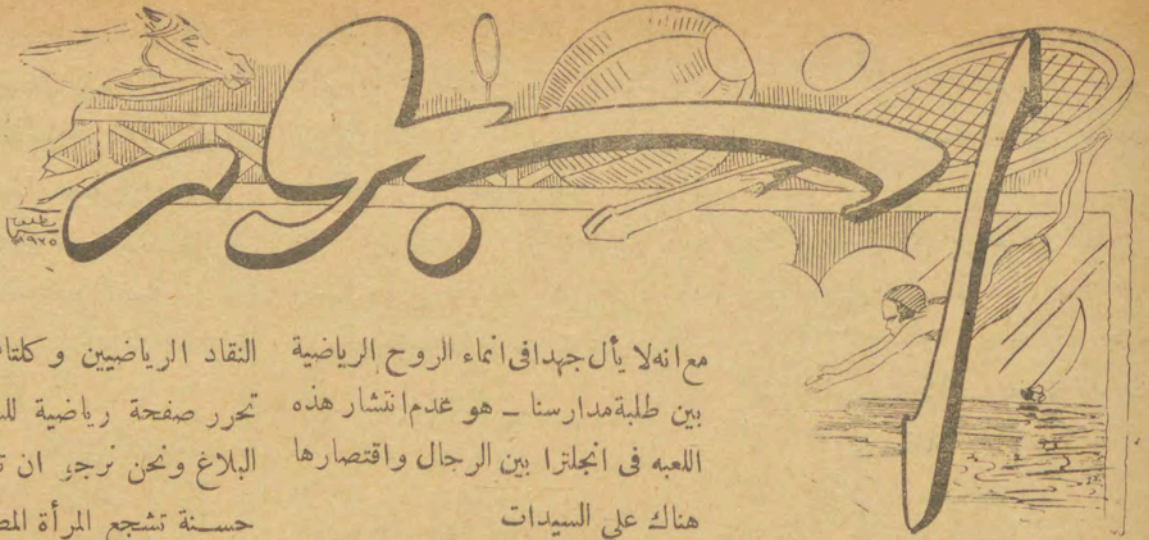 اسبور
١٩٢٥
مع انه لا يأل جهدا فى انماء الروح الرياضية
بين طلبة مدارسنا ـ هو عدم انتشار هذه
اللعبه فى انجلترا بين الرجال واقتصارها
هناك على السيدات
النقاد الرياضيين وكلتا
تحرر صفحة رياضية
البلاغ ونحن نرجو ان
حسنة تشجع المرأة المص